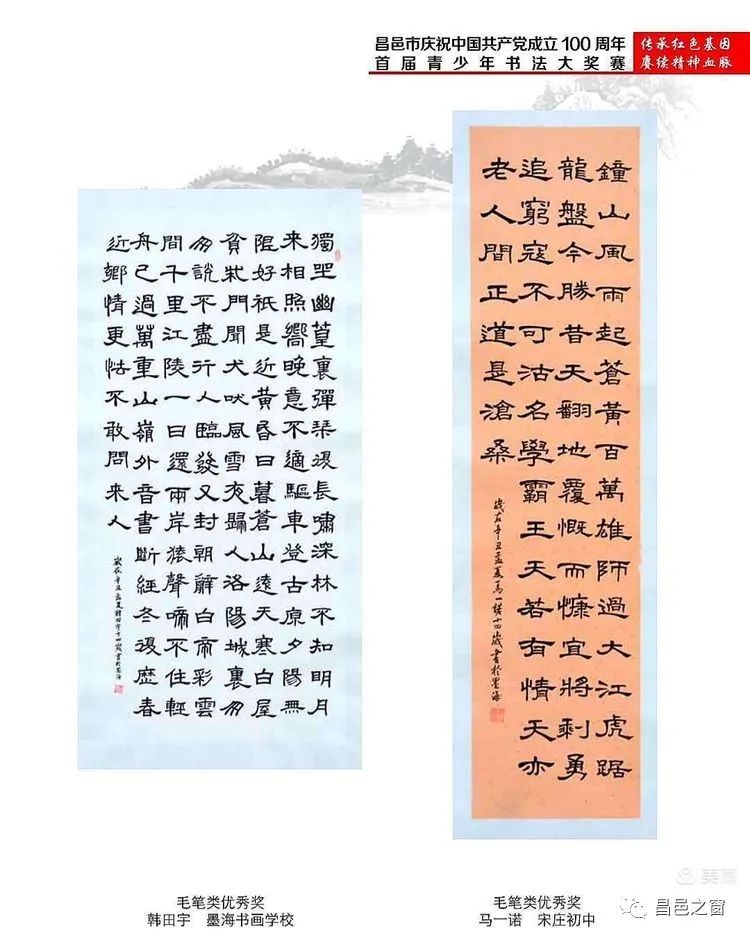 昌邑市庆祝中国共产党成立100周年
首届青少年书法大奖赛
传承红色基因
赓续精神血脉
獨坐幽篁裏彈琴復長嘯深林不知明月
來相照嚮晚意不適驅車登古原夕陽無
限好祇是近黃昏日暮蒼山遠天寒白屋
貧柴門聞犬吠風雪夜歸人洛陽城裏匆
匆說不盡行人臨發又封朝辭白帝彩雲
間千里江陵一日還兩岸猿聲啼不住輕
舟已過萬重山嶺外音書斷經冬復歷春
近鄉情更怯不敢問來人
歲在辛丑孟夏韓田宇十四歲書於墨海
鐘山風雨起蒼黃百萬雄師過大江虎踞
龍盤今勝昔天翻地覆慨而慷宜將剩勇
追窮寇不可沽名學霸王天若有情天亦
老人間正道是滄桑
歲在辛丑孟夏馬一諾十四歲書於墨海
毛笔类优秀奖
韩田宇 墨海书画学校
毛笔类优秀奖
马一诺 宋庄初中
美篇
昌邑之窗